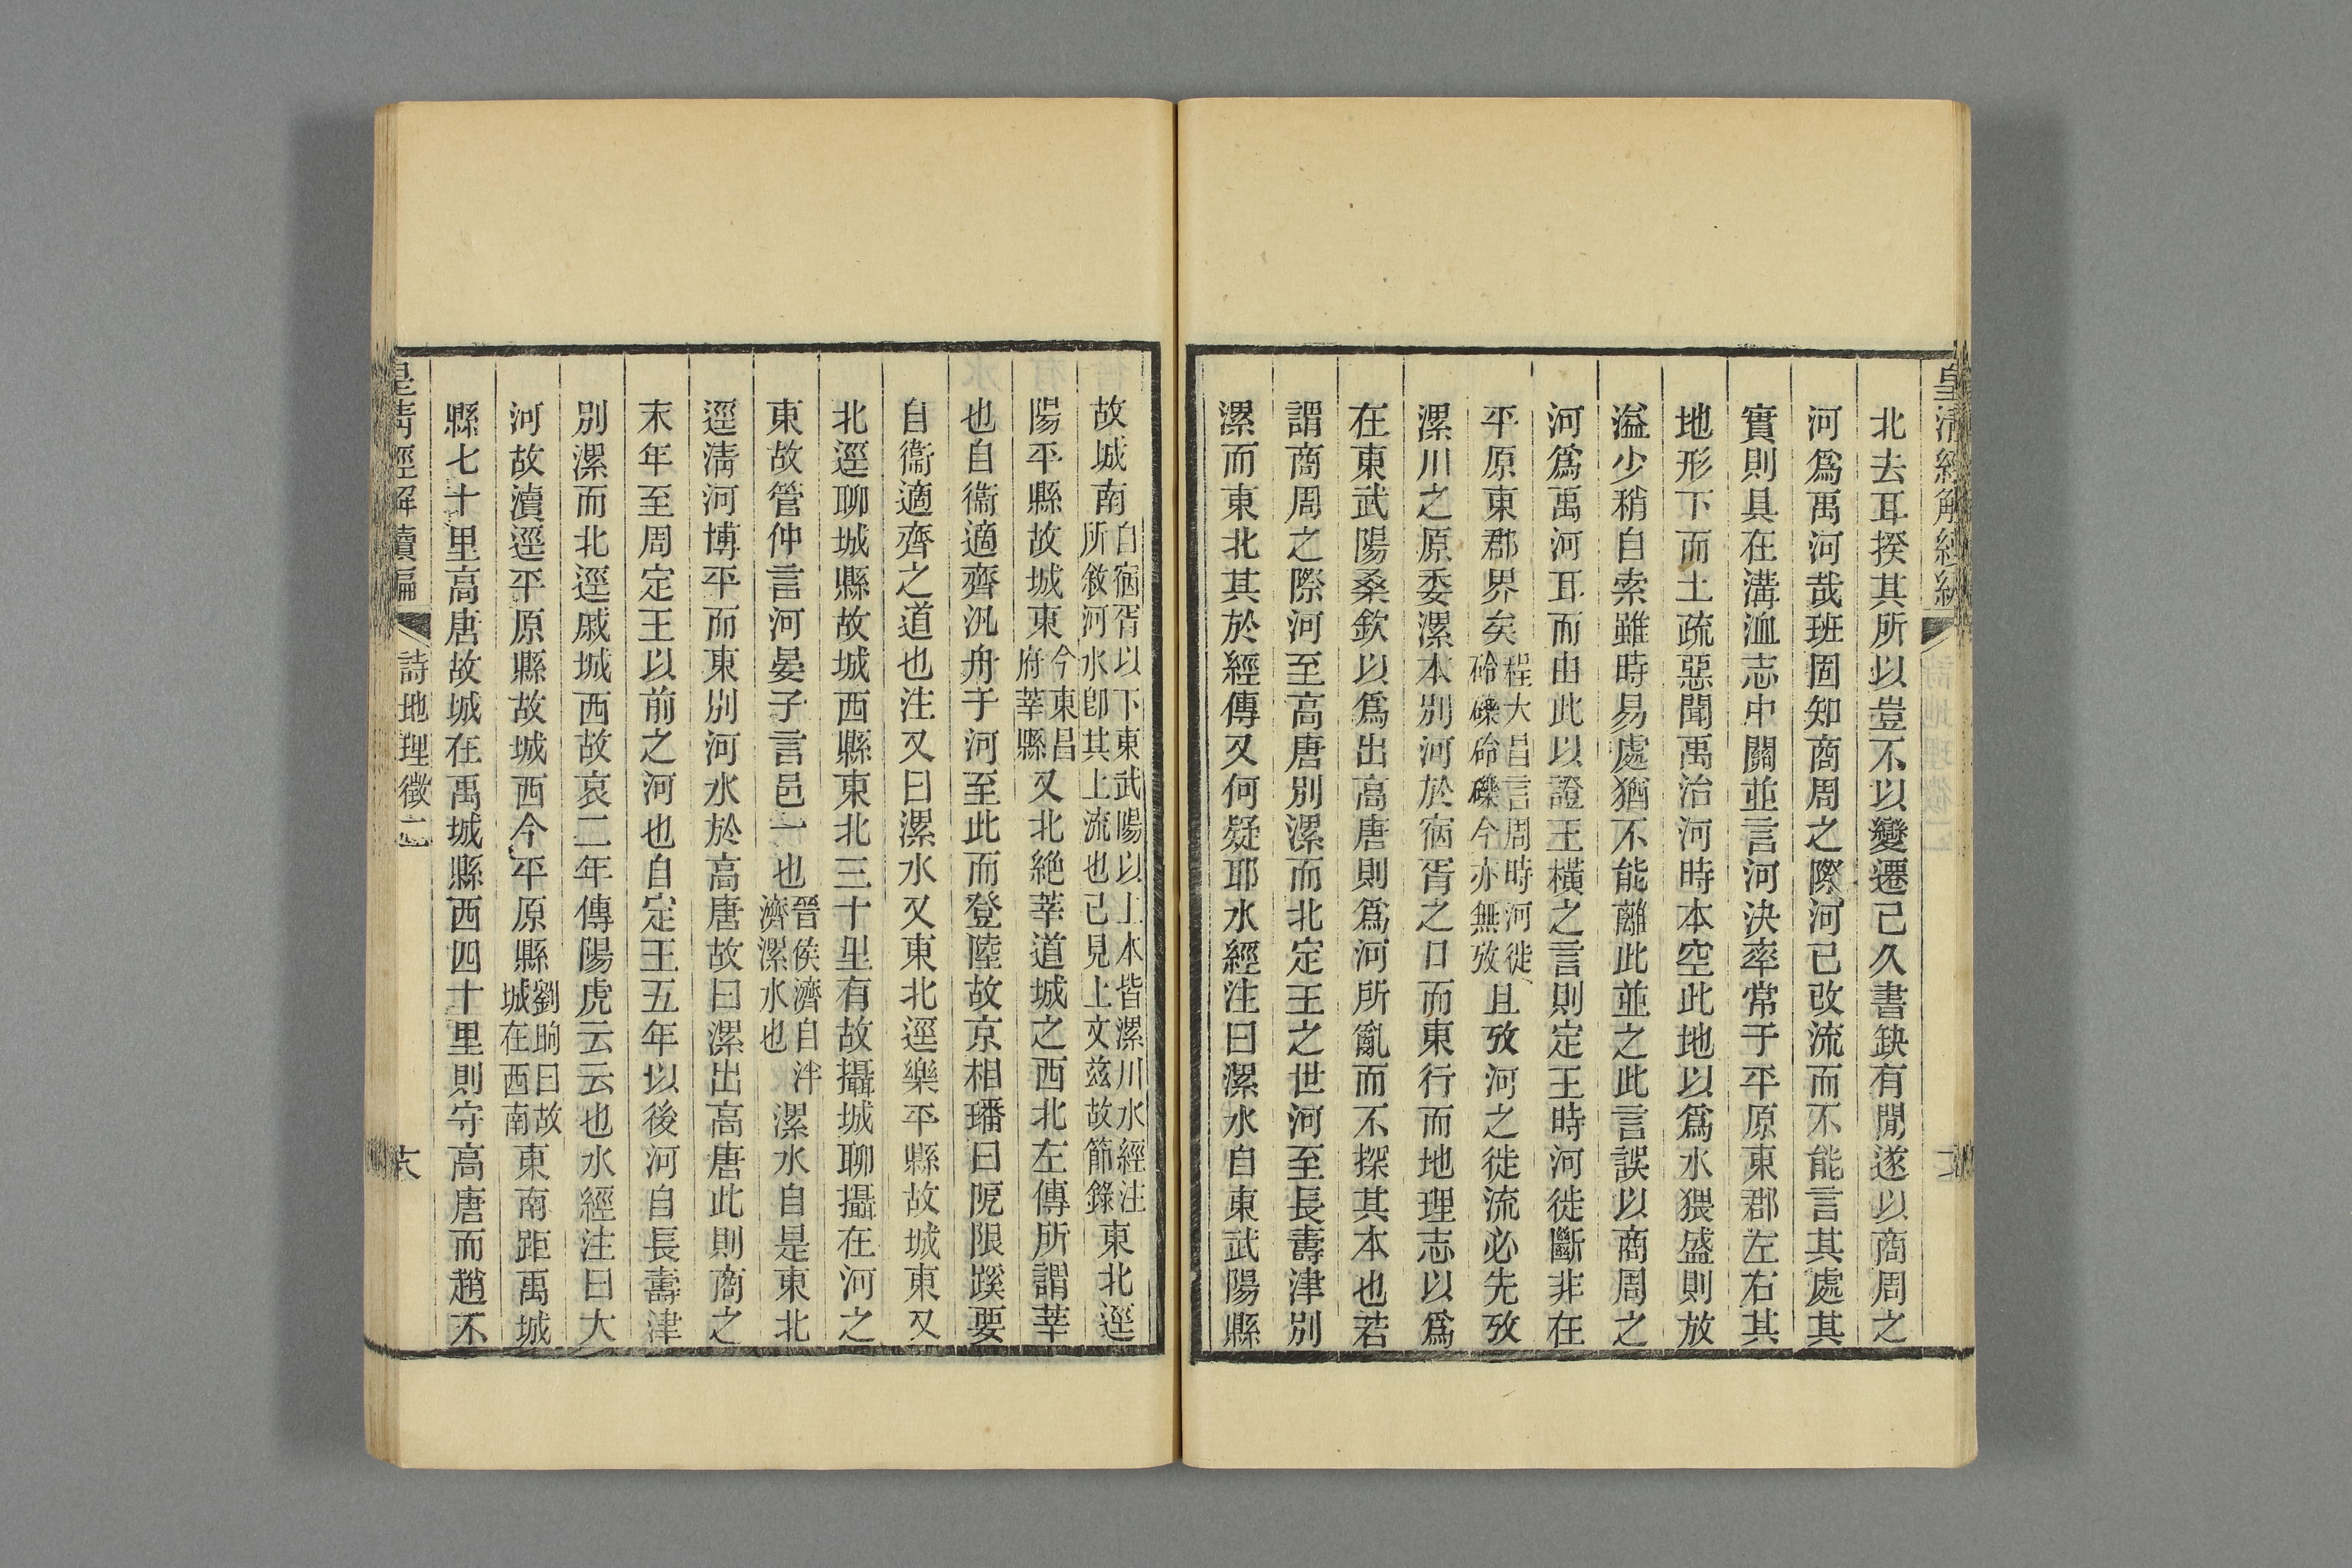 皇清經解續編
北去耳揆其所以豈不以變遷已久書缺有閒遂以商周之
河爲禹河哉班固知商周之際河已改流而不能言其處其
實則具在溝洫志中關並言河決率常于平原東郡左右其
地形下而土疏惡聞禹治河時本空此地以爲水猥盛則放
溢少稍自索雖時易處猶不能離此並之此言誤以商周之
河爲禹河耳而由此以證王橫之言則定王時河徙斷非在
平原東郡界矣程大昌言周時河徙砱礫砱礫今亦無攷且攷河之徙流必先攷
漯川之原委漯本別河於宿胥之口而東行而地理志以爲
在東武陽桑欽以爲出高唐則爲河所亂而不探其本也若
謂商周之際河至高唐別漯而北定王之世河至長壽津別
漯而東北其於經傳又何疑耶水經注曰漯水自東武陽縣
故城南自宿胥以下東武陽以上水皆漯川水經注所敘河水卽其上流也已見上文茲故節錄東北逕
陽平縣故城東今東昌府莘縣又北絶莘道城之西北左傳所謂莘
也自衞適齊汎舟于河至此而登陸故京相璠曰阸限蹊要
自衞適齊之道也注又曰漯水又東北逕樂平縣故城東又
北逕聊城縣故城西縣東北三十里有故攝城聊攝在河之
東故管仲言河晏子言邑一也晉侯濟自泮濟漯水也漯水自是東北
逕淸河博平而東別河水於高唐故曰漯出高唐此則商之
末年至周定王以前之河也自定王五年以後河自長壽津
別漯而北逕戚城西故哀二年傳陽虎云云也水經注曰大
河故瀆逕平原縣故城西今平原縣劉昫曰故城在西南東南距禹城
縣七十里高唐故城在禹城縣西四十里則守高唐而趙不
皇清經解續編 詩地理徵二 大